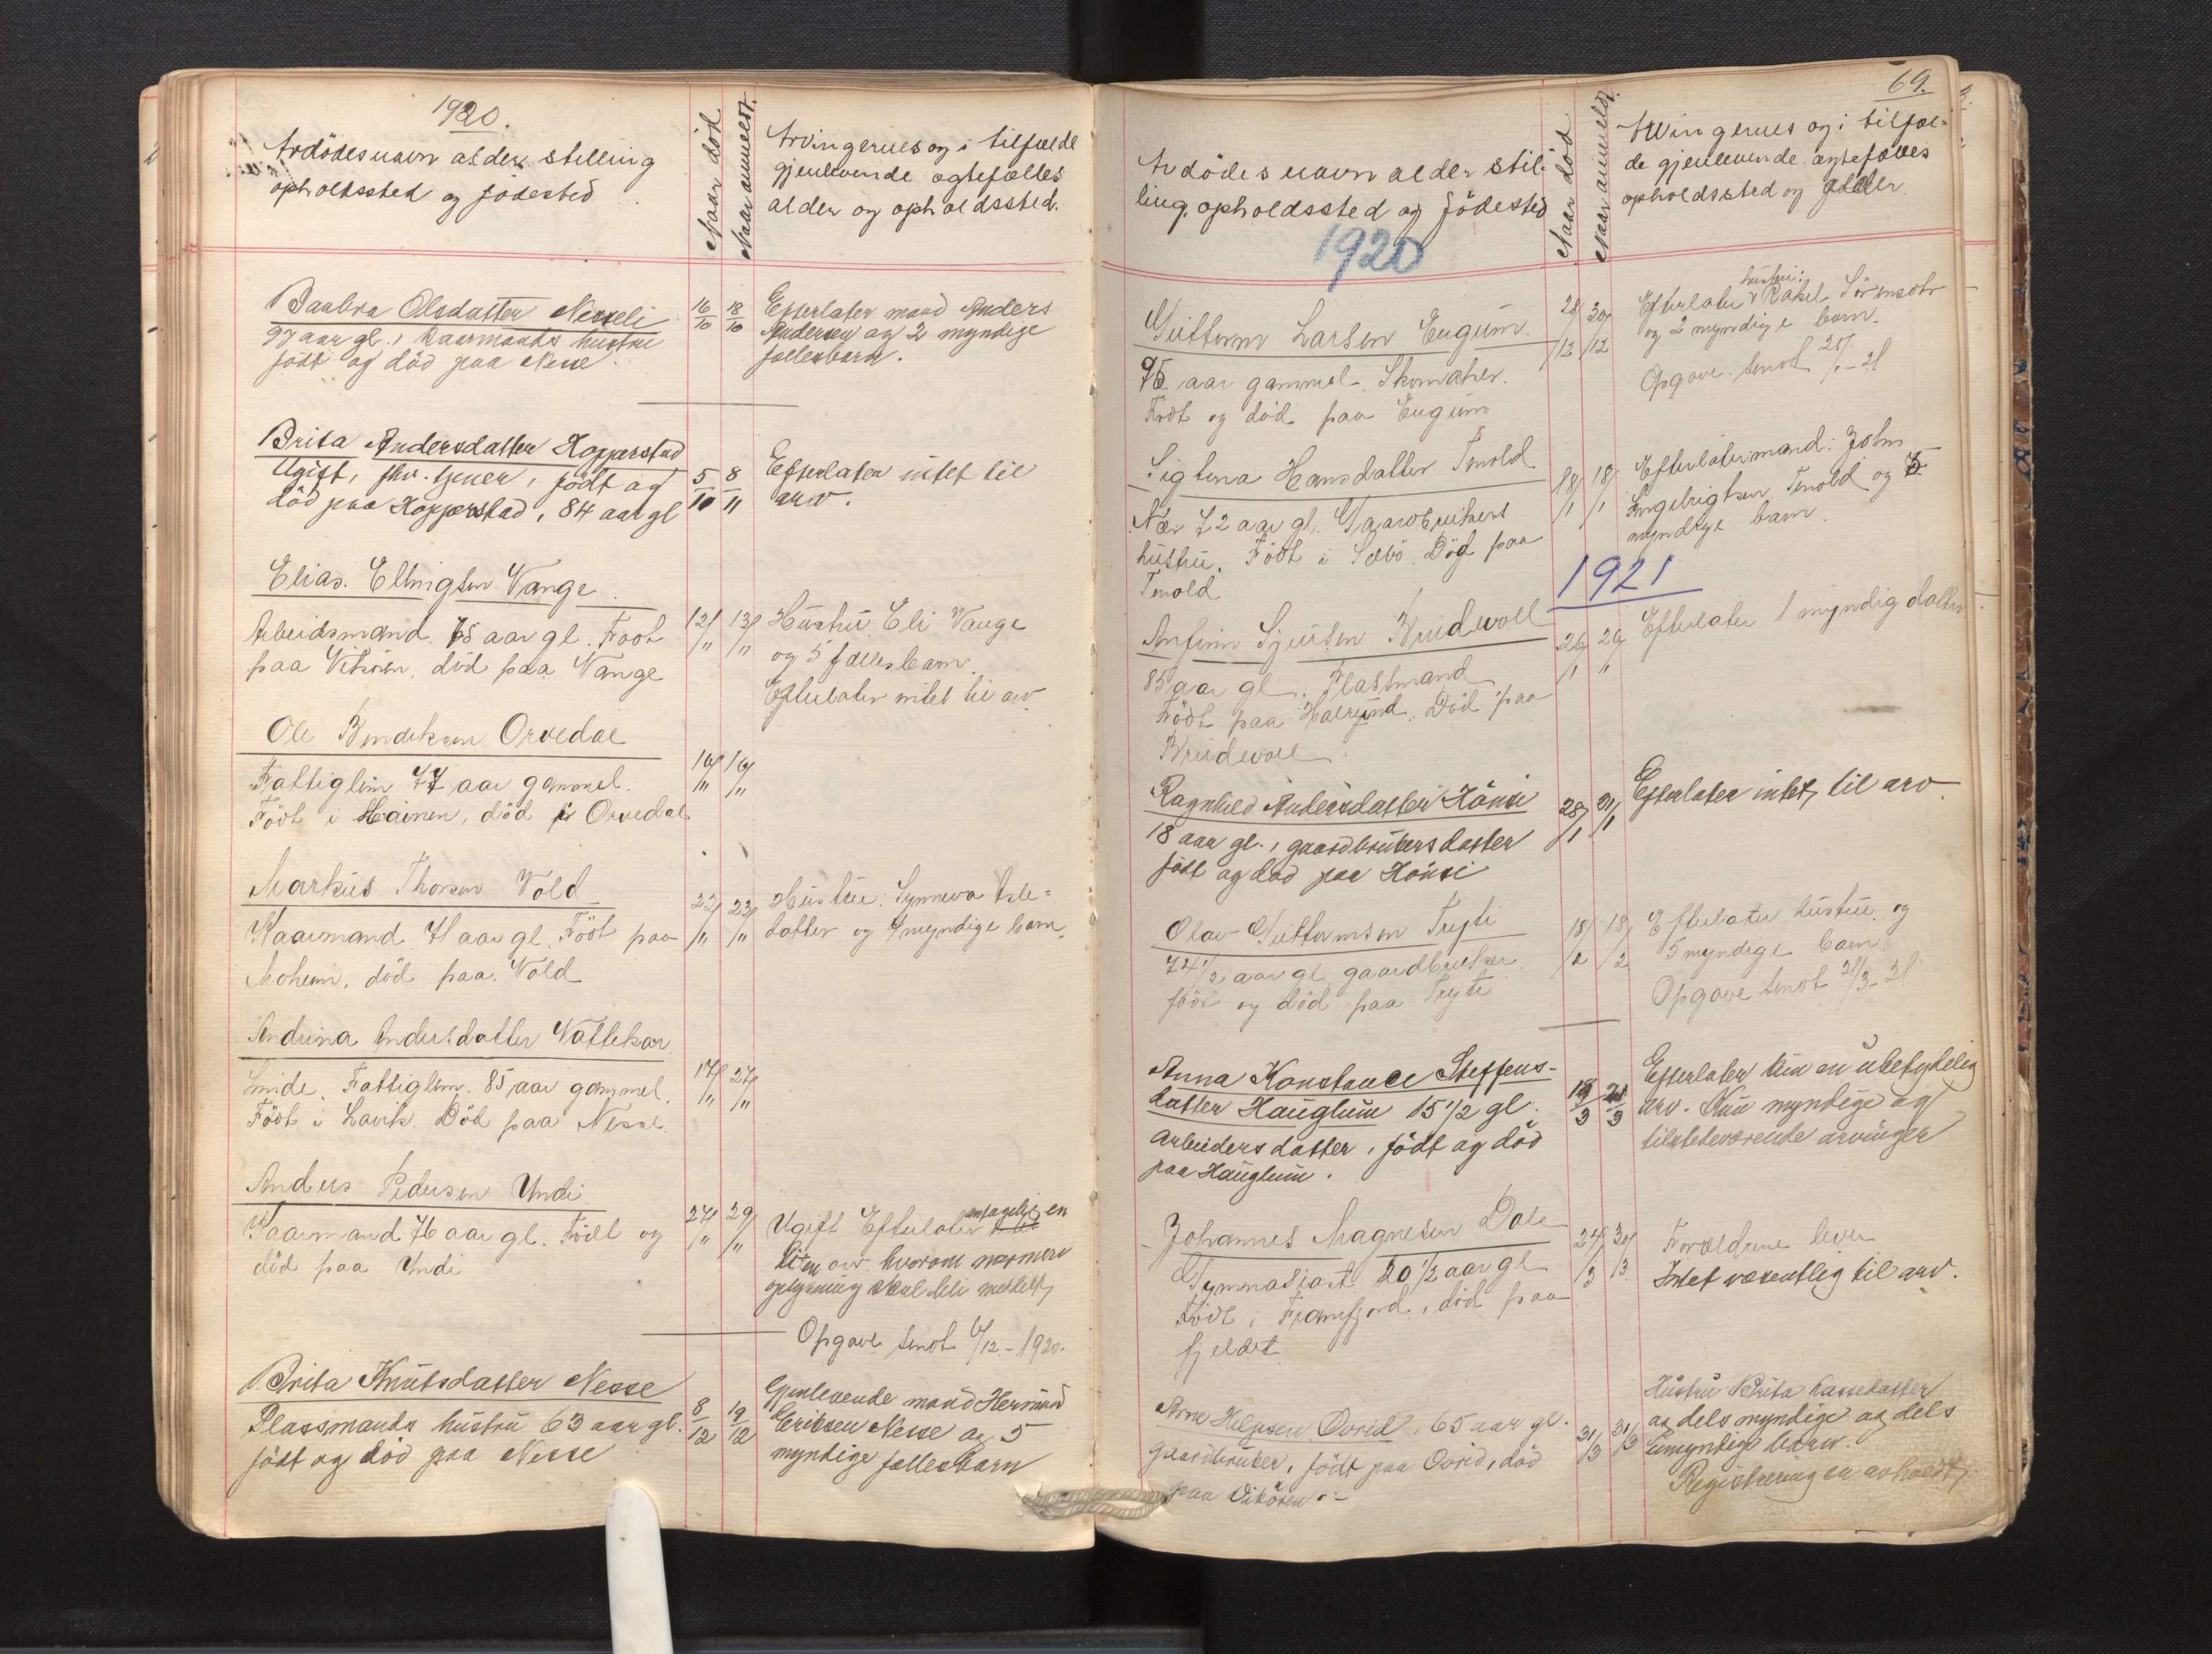 1920.
Avdödes navn alder stilling
opholdssted og födested
Naar död.
Naar anmeldt.
Arvingernes og i tilfælde
gjenlevende egtefælles
alder og opholdssted.
Baubra Olsdatter Nesseli
97 aar gl., kaarmands hustru
födt og död paa Nesse.
16/10 18/10
Efterlater mand Anders
Andersen og 2 myndige
fællesbarn.
Brita Andersdatter Hopperstad
Ugift, fhv. tjener, födt og
död paa Hopperstad, 84 aar gl
5/10 8/11
Efterlater intet til
arv.
Elias Ellingsen Vange.
Arbeidsmand. 78 aar gl. Födt
paa Vikören, död paa Vange
12/11 13/11
Hustru Eli Vange
og 5 fællesbarn.
Efterlater intet til arv.
Ole Bendiksen Orvedal
Fattiglem 77 aar gammel.
Födt i död i Orvedal
16/11 16/11
Markus Thorsen Vold
Kaarmand 71 aar gl. Födt paa
Moheim, död paa Vold
22/11 23/11
Hustru: Synneva Asle-
datter og 4 myndige barn.
Andrina Andersdatter Nattekar
inde. Fattiglem. 85 aar gammel.
Födt i Lavik. Död paa Nesse.
17/11 27/11
Anders Pedersen Undi
Kaarmand 76 aar gl. Födt og
död paa Undi
27/11 29/11
Ugift Efterlater antagelig en
liten arv hvorom nærmere
oplysning skal bli meddelt,
Opgave sendt 6/12 - 1920.
Brita Knutsdatter Nesse
Plassmands hustru 63 aar gl.
födt og död paa Nesse
8/12 19/12
Gjenlevende mand Hermund
Eriksen Nesse og 5
myndige fællesbarn
69.
Avdödes navn alder stil-
ling, opholdssted og födested
Naar död
Naar anmeldt.
Arvingernes og i tilfæl-
de gjenlevende egtefælles
opholdssted og alder.
1920
Guttorm Larsen Engum.
75 aar gammel. Skomaker.
Födt og död paa Engum
28/12 30/12
hustru:
Efterlater Rakel Sörensdtr
og 2 myndige barn.
Opgave sendt 20/1 - 21
Sigtena Hansdatter Tenold
Nær 72 aar gl. Gaardbrukers
hustru. Födt i Sæbö. Död paa
Tenold
18/1 18/1
Efterlater mand: John
Ingebrigtsen Tenold og 5
myndige barn.
1921
Anfinn Sjursen Brudevoll
85 aar gl. Plassmand
Födt paa Död paa
Brudevoll
26/1 29/1
Efterlater 1 myndig datter
Ragnhild Andersdatter Hönsi
18 aar gl., gaardbrukers datter
födt og död paa Hönsi
28/1 31/1
Efterlater intet til arv.
Olav Guttormsen Tryti
74 1/2 aar gl. gaardbruker
födt og död paa Tryti
18/2 18/2
Efterlater hustru og
5 myndige barn.
Opgave sendt 21/3 - 21
Anna Konstance Steffens-
datter Hauglum 15 1/2 gl.
arbeiders datter, födt og död
paa Hauglum.
19/3 21/3
Efterlater kun en ubetydelig
arv. Kun myndige og
tilstedeværende arvinger
Johannes Magnesen Dale
Gymnasiast 20 1/2 aar gl
Födt i Framfjord, död paa
fjeldet
24/3 30/3
Forældrene lever
Intet væsentlig til arv.
Arne Helgesen Ovrid, 65 aar gl.
gaardbruker, födt paa Ovrid, död
paa Vikören.-
31/3 31/3
Hustru Brita Lassedatter
og dels myndige og dels
umyndige barn.
Registrering er avholdt,